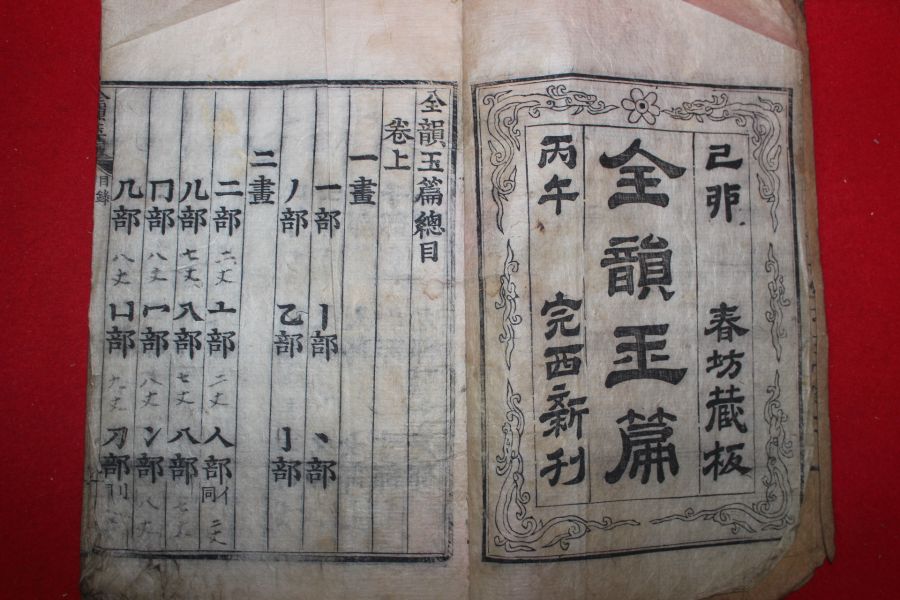 己卯 春坊藏板
全韻玉篇
丙午 完西新刊
全韻玉篇總目
卷上
一畫
一部 丨部 丶部
丿部 乙部 亅部
二畫
二部 亠部 二丈 人部 亻同 二丈
儿部 七丈 入部 七丈 八部 七丈
冂部 八丈 冖部 八丈 冫部 八丈
几部 八丈 凵部 九丈 刀部 刂
全韻玉篇 目錄